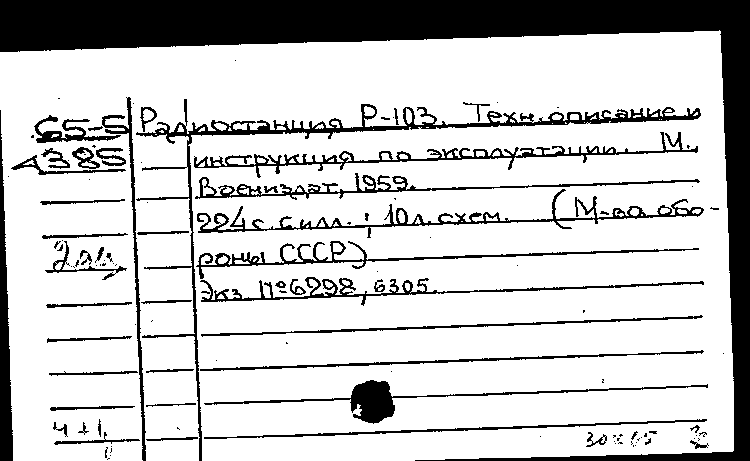 65-5 Радиостанция Р-103. Техн. описание и
385 инструкция по эксплуатации. М.,
Воениздат, 1959.
224 с. с илл.; 10 л. схем. (М-во обо-
роны СССР)
2 ош
Экз. №6298, 6305.
Ч+1
30х65